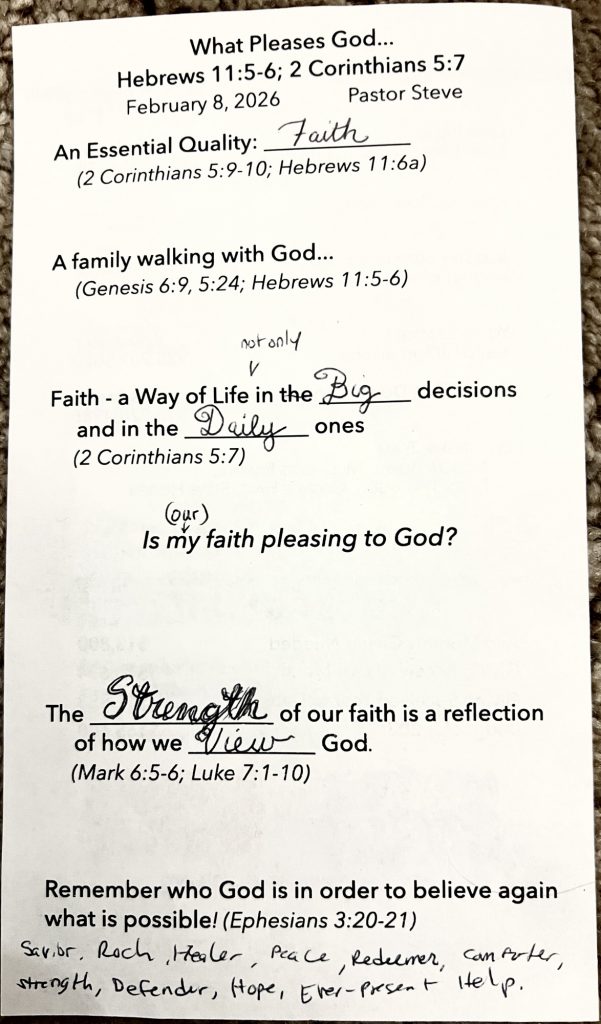 What Pleases God...
Hebrews 11:5-6; 2 Corinthians 5:7
February 8, 2026 Pastor Steve
An Essential Quality: Faith
(2 Corinthians 5:9-10; Hebrews 11:6a)
A family walking with God...
(Genesis 6:9, 5:24; Hebrews 11:5-6)
not only
Faith - a Way of Life in the Big decisions
and in the Daily ones
(2 Corinthians 5:7)
(our)
Is my faith pleasing to God?
The Strength of our faith is a reflection
of how we View God.
(Mark 6:5-6; Luke 7:1-10)
Remember who God is in order to believe again
what is possible! (Ephesians 3:20-21)
Savior, Rock, Healer, Peace, Redeemer, Comforter,
Strength, Defender, Hope, Ever-present Help.